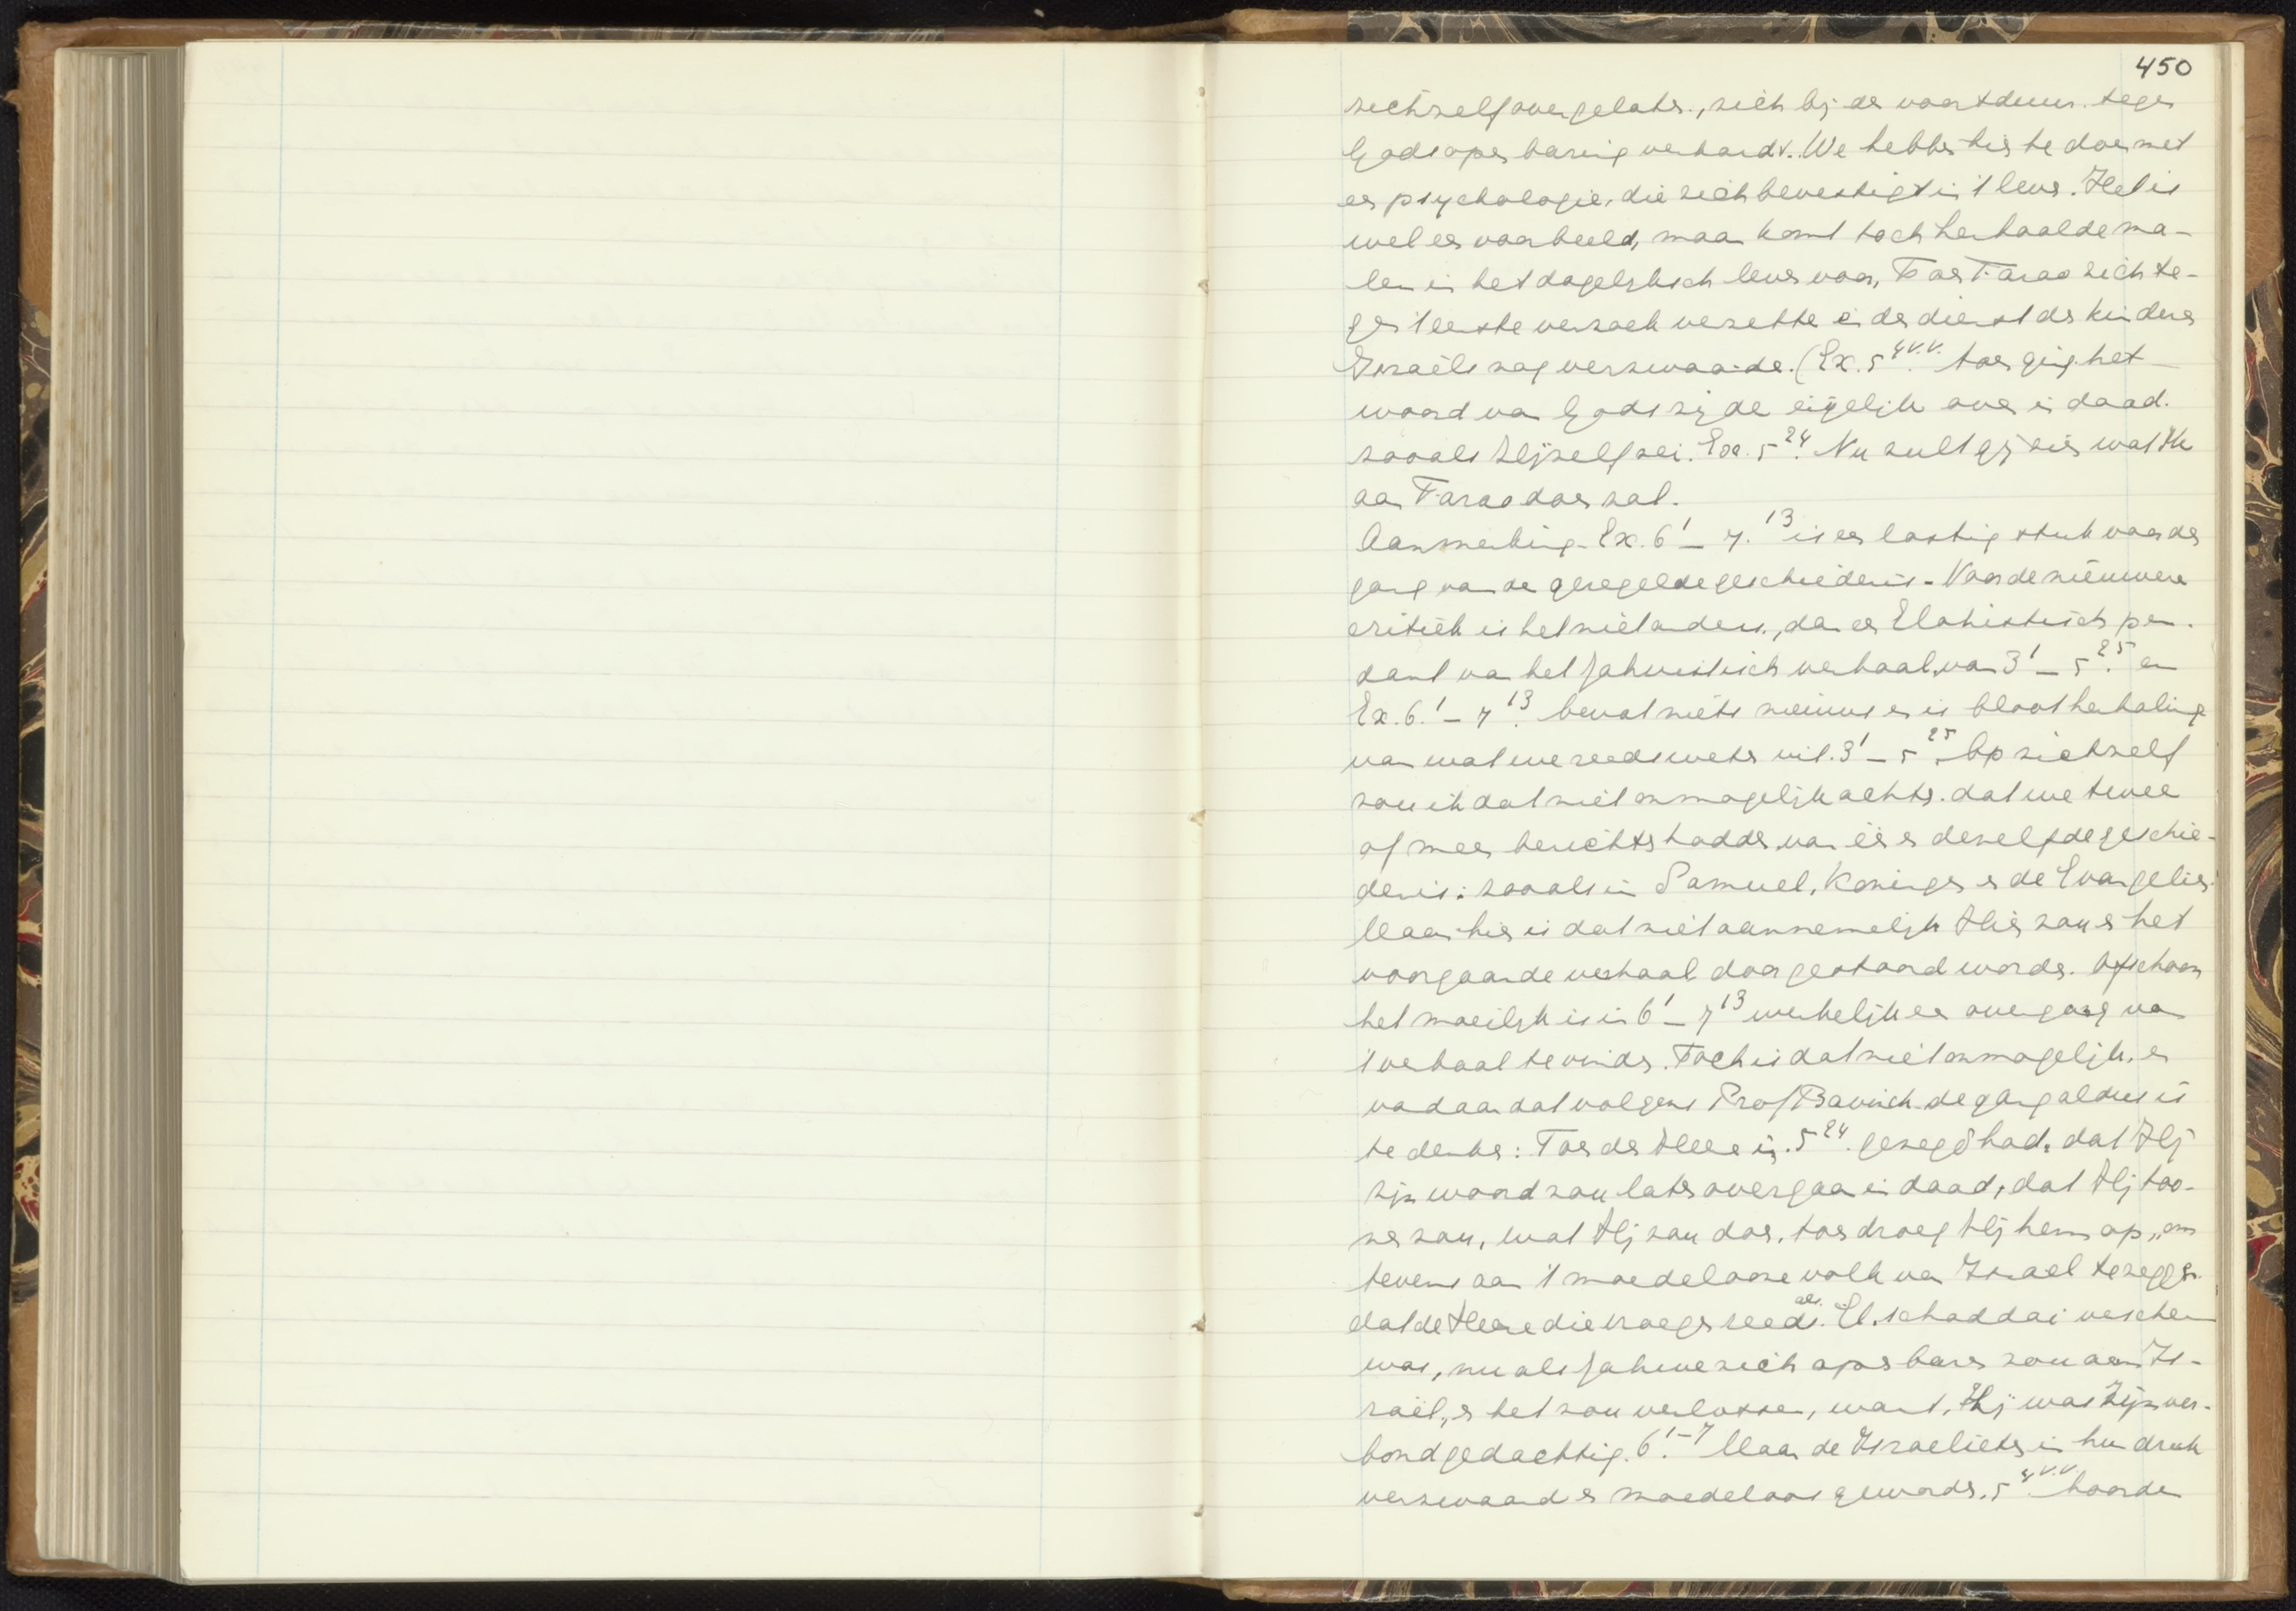 450
zichzelf overgelaten, zich bij de voortduur tegen
Gods openbaring verhardt. We hebben hier te doen met
een psychologie, die zich bevestigt in 't leven. Het is
wel een voorbeeld, maar komt toch herhaaldema-
len in het dagelijksch leven voor. Toen Farao zich te-
gen 't eerste verzoek verzette en de dienst der kinderen
Israëls nog verzwaarde. (Ex. 5 4 v.v. toen ging het
woord van Gods zijde eigelijk over in daad.
zooals Hijzelf zei. Ex. 5 24. Nu zult gij zien wat Ik
aan Farao doen zal.
Aanmerking - Ex. 6 1 - 7. 13 is een lastig stuk voor den
gang van de geregelde geschiedenis - Voor de nieuwere
critiek is het niet anders, dan een Elohistisch pen-
dant van het Jahvistisch verhaal, van 3 1 - 5 25. en
Ex. 6. 1 - 7 13. bevat niets nieuws en is bloot herhaling
van wat we reeds weten uit. 3 1 - 5 25. Op zichzelf
zou ik dat niet onmogelijk achten. dat we twee
of meer berichten hadden van één en dezelfde geschie-
denis: zooals in Samuel, Koningen en de Evangeliën.
Maar hier is dat niet aannemelijk Hier zou er het
voorgaande verhaal door gestoord worden. Ofschoon
het moeilijk is in 6 1 - 7 13 werkelijk een overgang van
't verhaal te vinden. Toch is dat niet onmogelijk, en
vandaar dat volgens Prof Bavinck de gang aldus is
te denken: Toen de Heere in. 5 24. gezegd had, dat Hij
zijn woord zou laten overgaan in daad, dat Hij too-
nen zou, wat Hij zou doen, toen droeg Hij hem op „om
tevens aan 't moedelooze volk van Israel te zeggen.
dat de Heere die vroeger reeds als El-schaddai verschenen
was, nu als Jahwe zich openbaren zou aan Is-
raël, en het zou verlossen, want, Hij was Zijn ver-
bond gedachtig. 6 1-7. Maar de Israelieten in hun druk
verzwaard en moedeloos geworden. 5 4 v.v. hoorden